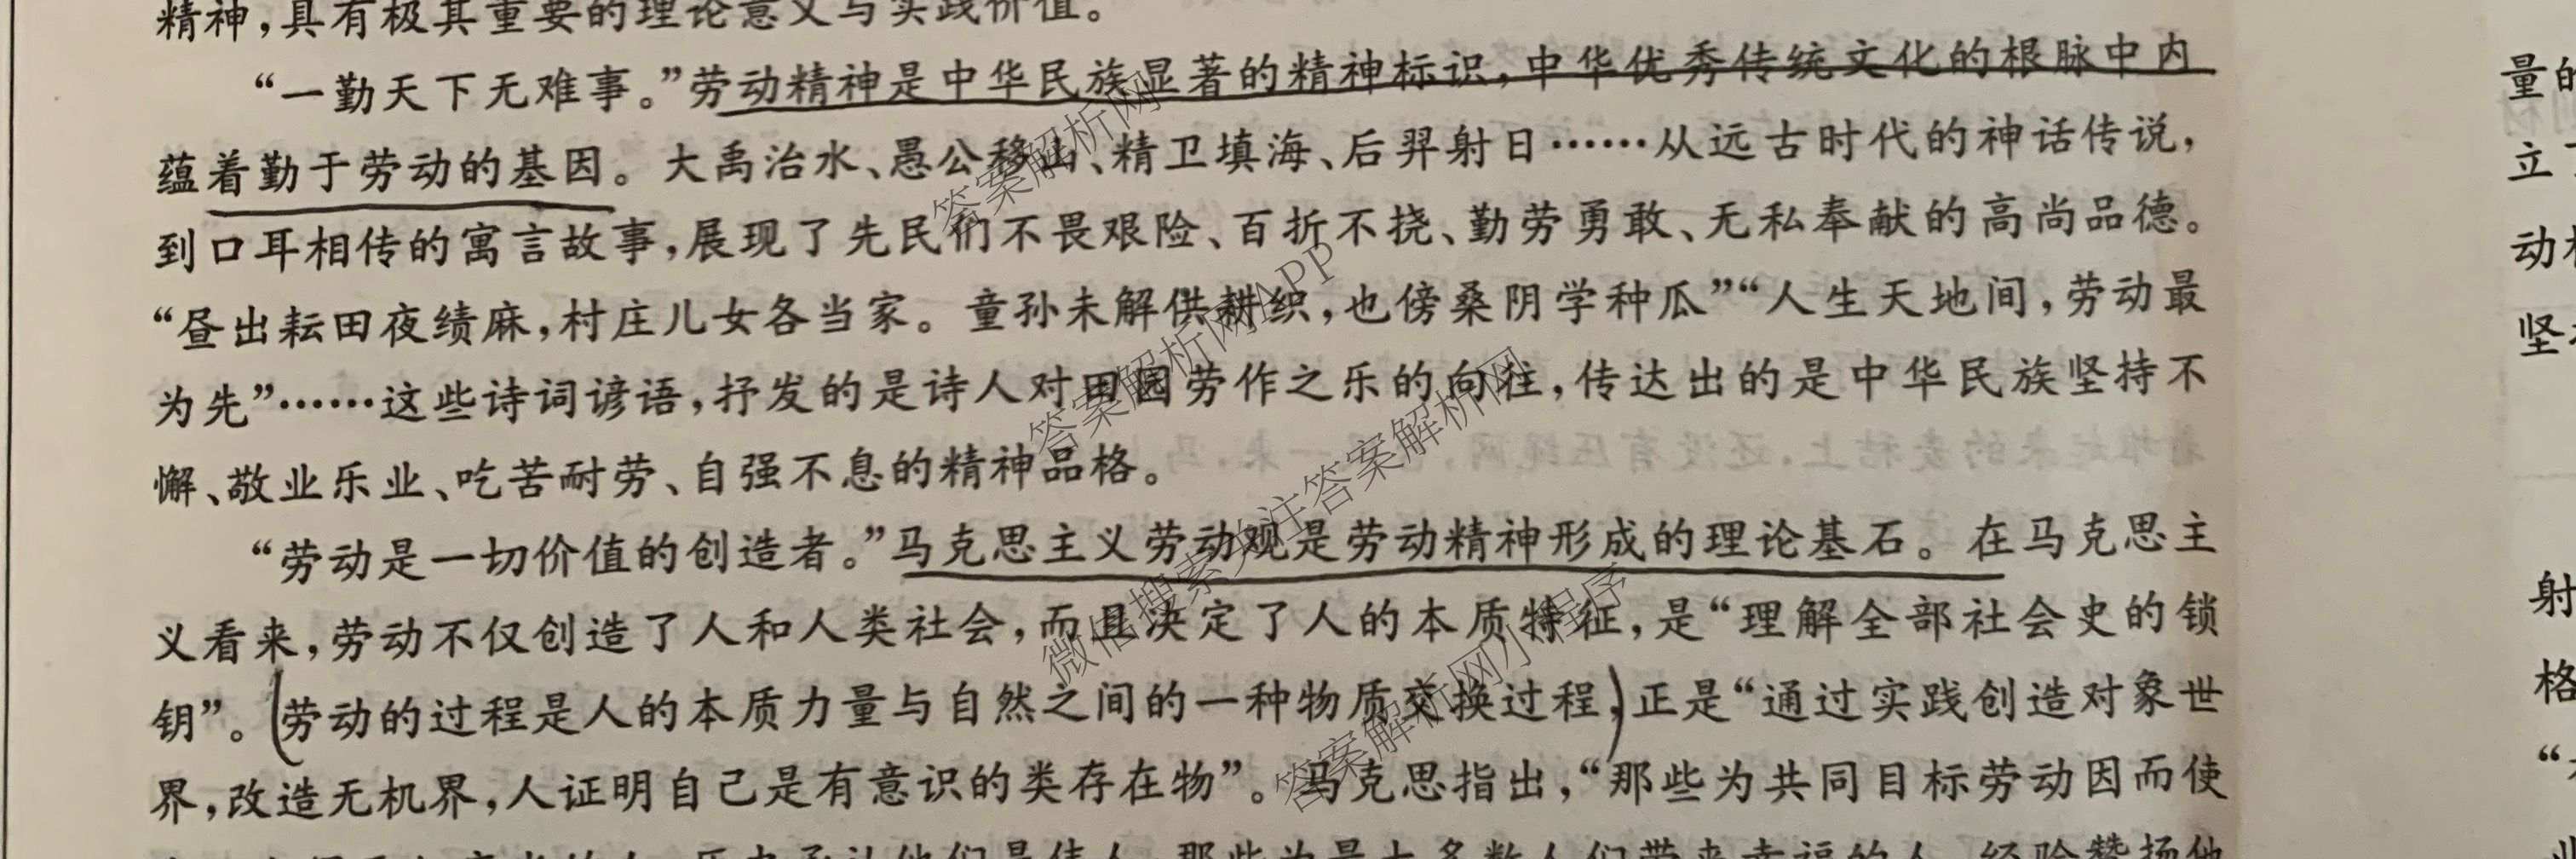 精神，具有极其重要的理论意义与实践价值。
“一勤天下无难事。”劳动精神是中华民族显著的精神标识，中华优秀传统文化的根脉中内
蕴着勤于劳动的基因。大禹治水、愚公移山、精卫填海、后羿射日……从远古时代的神话传说，
到口耳相传的寓言故事，展现了先民们不畏艰险、百折不挠、勤劳勇敢、无私奉献的高尚品德。
“昼出耘田夜绩麻，村庄儿女各当家。童孙未解供耕织，也傍桑阴学种瓜”“人生天地间，劳动最
为先”……这些诗词谚语，抒发的是诗人对田园劳作之乐的向往，传达出的是中华民族坚持不
懈、敬业乐业、吃苦耐劳、自强不息的精神品格。
“劳动是一切价值的创造者。”马克思主义劳动观是劳动精神形成的理论基石。在马克思主
义看来，劳动不仅创造了人和人类社会，而且决定了人的本质特征，是“理解全部社会史的锁
钥”。(劳动的过程是人的本质力量与自然之间的一种物质交换过程，)正是“通过实践创造对象世
界，改造无机界，人证明自己是有意识的类存在物”。马克思指出，“那些为共同目标劳动因而使
历史承认他们是伟人；那些为最大多数人们带来幸福的人，经验赞扬他
量的
立
动
坚
射
格
答案解析网
答案解析网APP
微信搜索关注答案解析网
答案解析网小程序